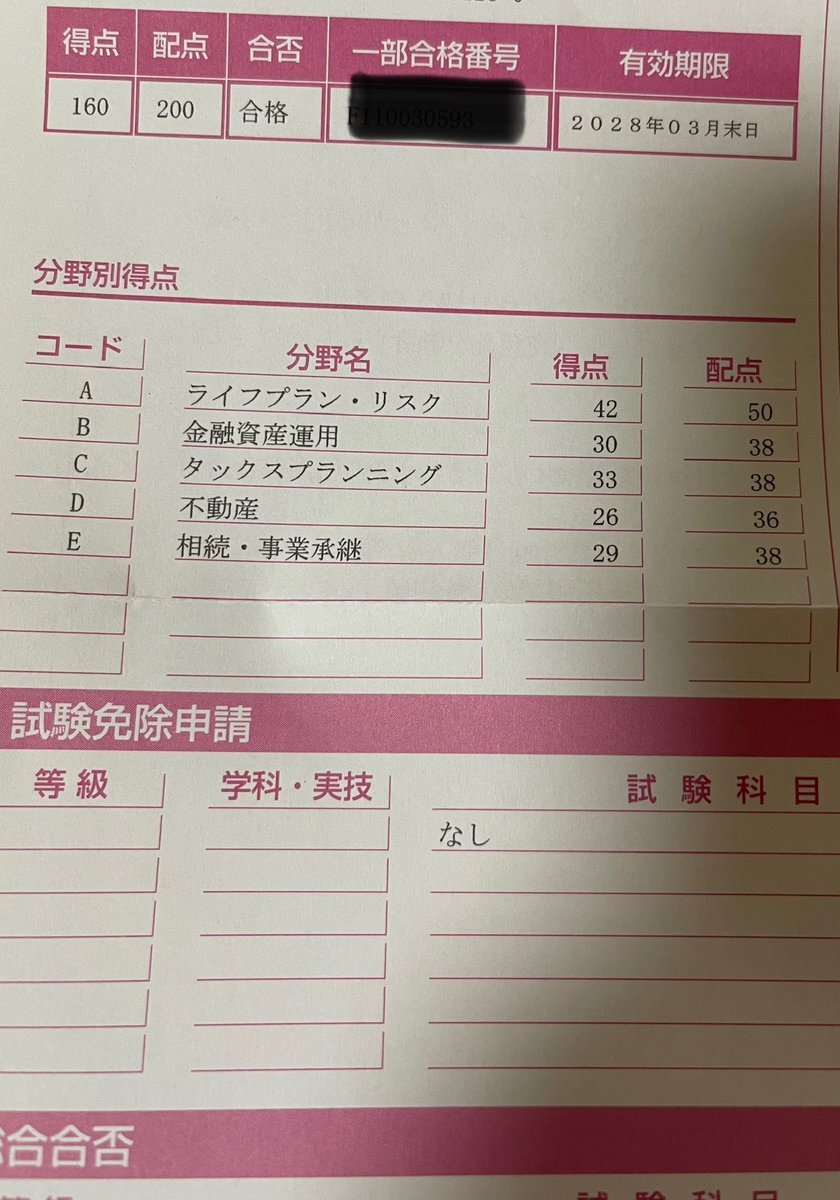 得点 配点 合否 一部合格番号 有効期限
160 200 合格 2028年03月末日
分野別得点
コード 分野名 得点 配点
A ライフプラン・リスク 42 50
B 金融資産運用 30 38
C タックスプランニング 33 38
D 不動産 26 36
E 相続・事業承継 29 38
試験免除申請
等級 学科・実技 試験科目
なし
総合合否
等級 試験科目